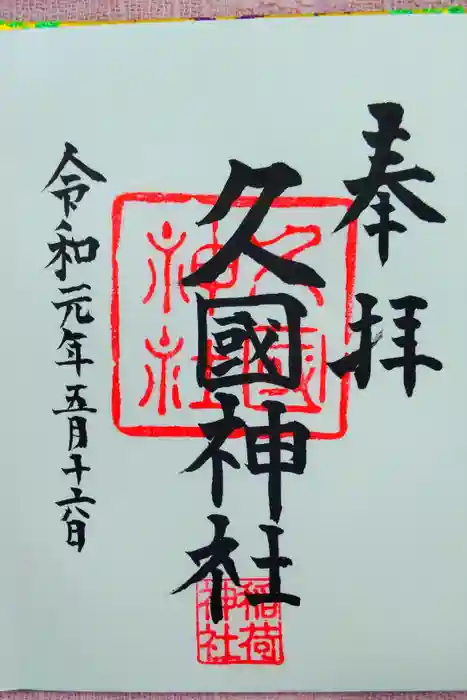 奉拝
久國神社
令和元年五月十六日
久國神社
稲荷神社